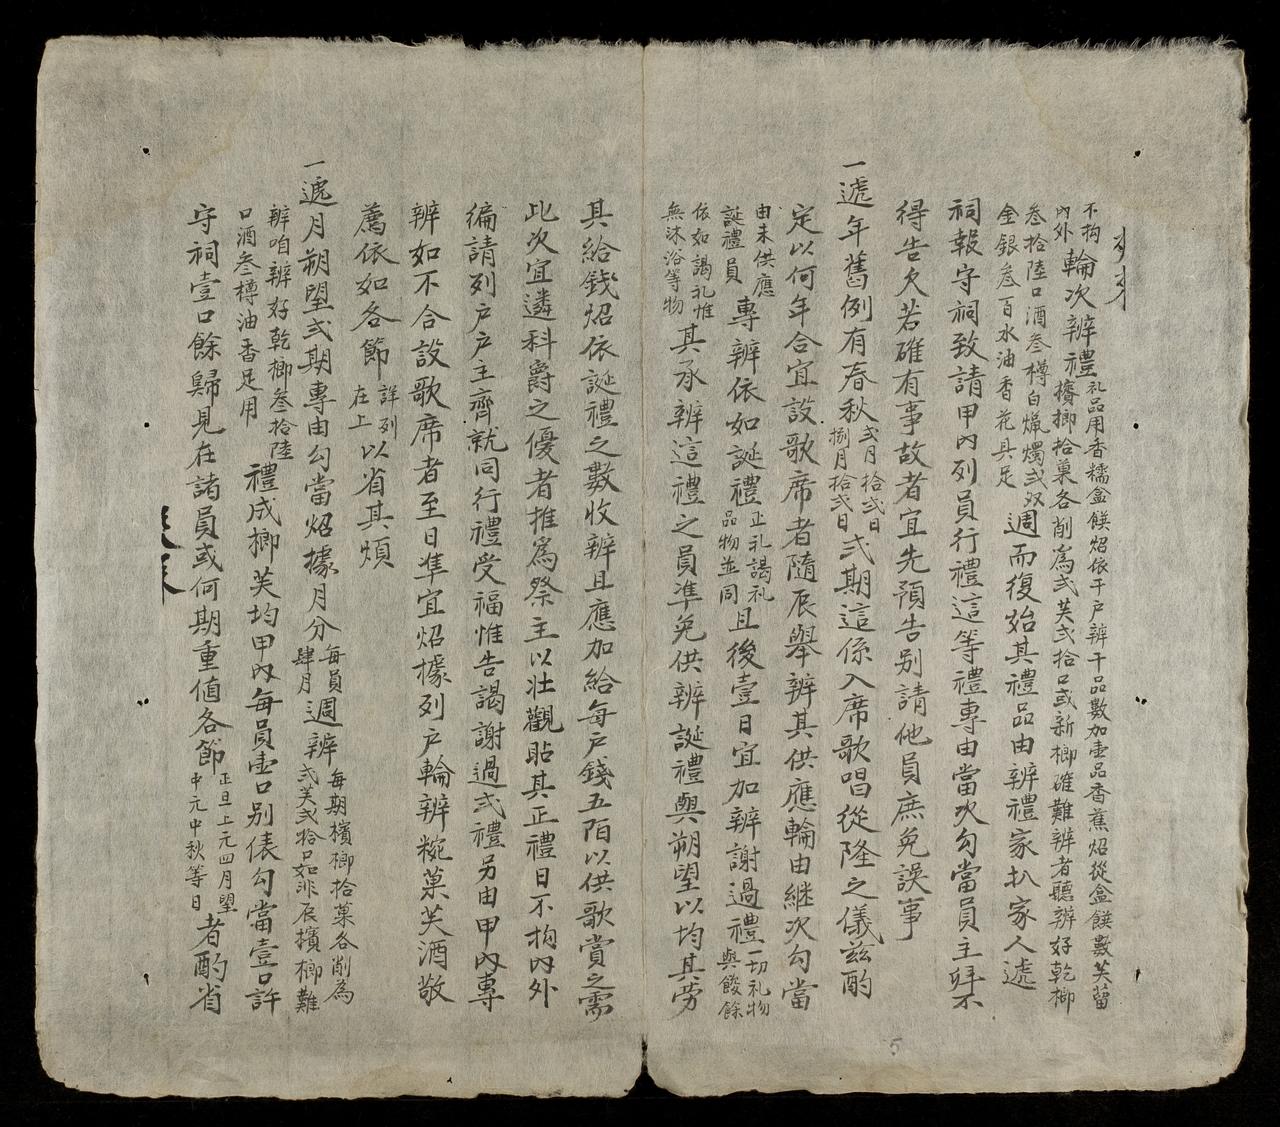 不拘內外輪次辨禮礼品用香糯盒饌炤依干户辨干品數加壹品香蕉炤從盒饌數芙菑檳榔拾菓各削爲弍芙弍拾口或新榔確難辨者聽辨好乾榔
叁拾陸口酒叁樽白爉燭弍双金銀叁百水油香花具足週而復始其禮品由辨禮家扒家人遞
祠報守祠致請甲內列員行禮這等禮專由當次勾當員主拜不
得告欠若確有事故者宜先預告别請他員庶免誤事
一遞年舊例有春秋弍月拾弍日捌月拾弍日弍期這係入席歌唱從隆之儀茲酌
定以何年合宜設歌席者隨辰舉辨其供應輪由継次勾當
由未供應誕禮員專辨依如誕禮正礼謁礼品物並同且後壹日宜加辨謝過禮一切礼物與餕餘
依如謁礼惟無沐浴等物其承辨這禮之員準免供辨誕禮與朔望以均其劳
其給錢炤依誕禮之數收辨且應加給每户錢五陌以供歌賞之需
此次宜遴科爵之優者推爲祭主以壮觀貼其正禮日不拘內外
徧請列户户主齊就同行禮受福惟告謁謝過弍禮另由甲內專
辨如不合設歌席者至日準宜炤據列户輪辨粄菓芙酒敬
薦依如各節詳列在上以省其煩
一遞月朔望弍期專由勾當炤據月分每員肆月週辨每期檳榔拾菓各削爲弍芙弍拾口如非辰檳榔難
辨咱辨好乾榔叁拾陸口酒叁樽油香足用禮成榔芙均甲內每員壹口别俵勾當壹口許
守祠壹口餘歸見在諸員或何期重値各節正旦上元四月望中元中秋等日者酌省